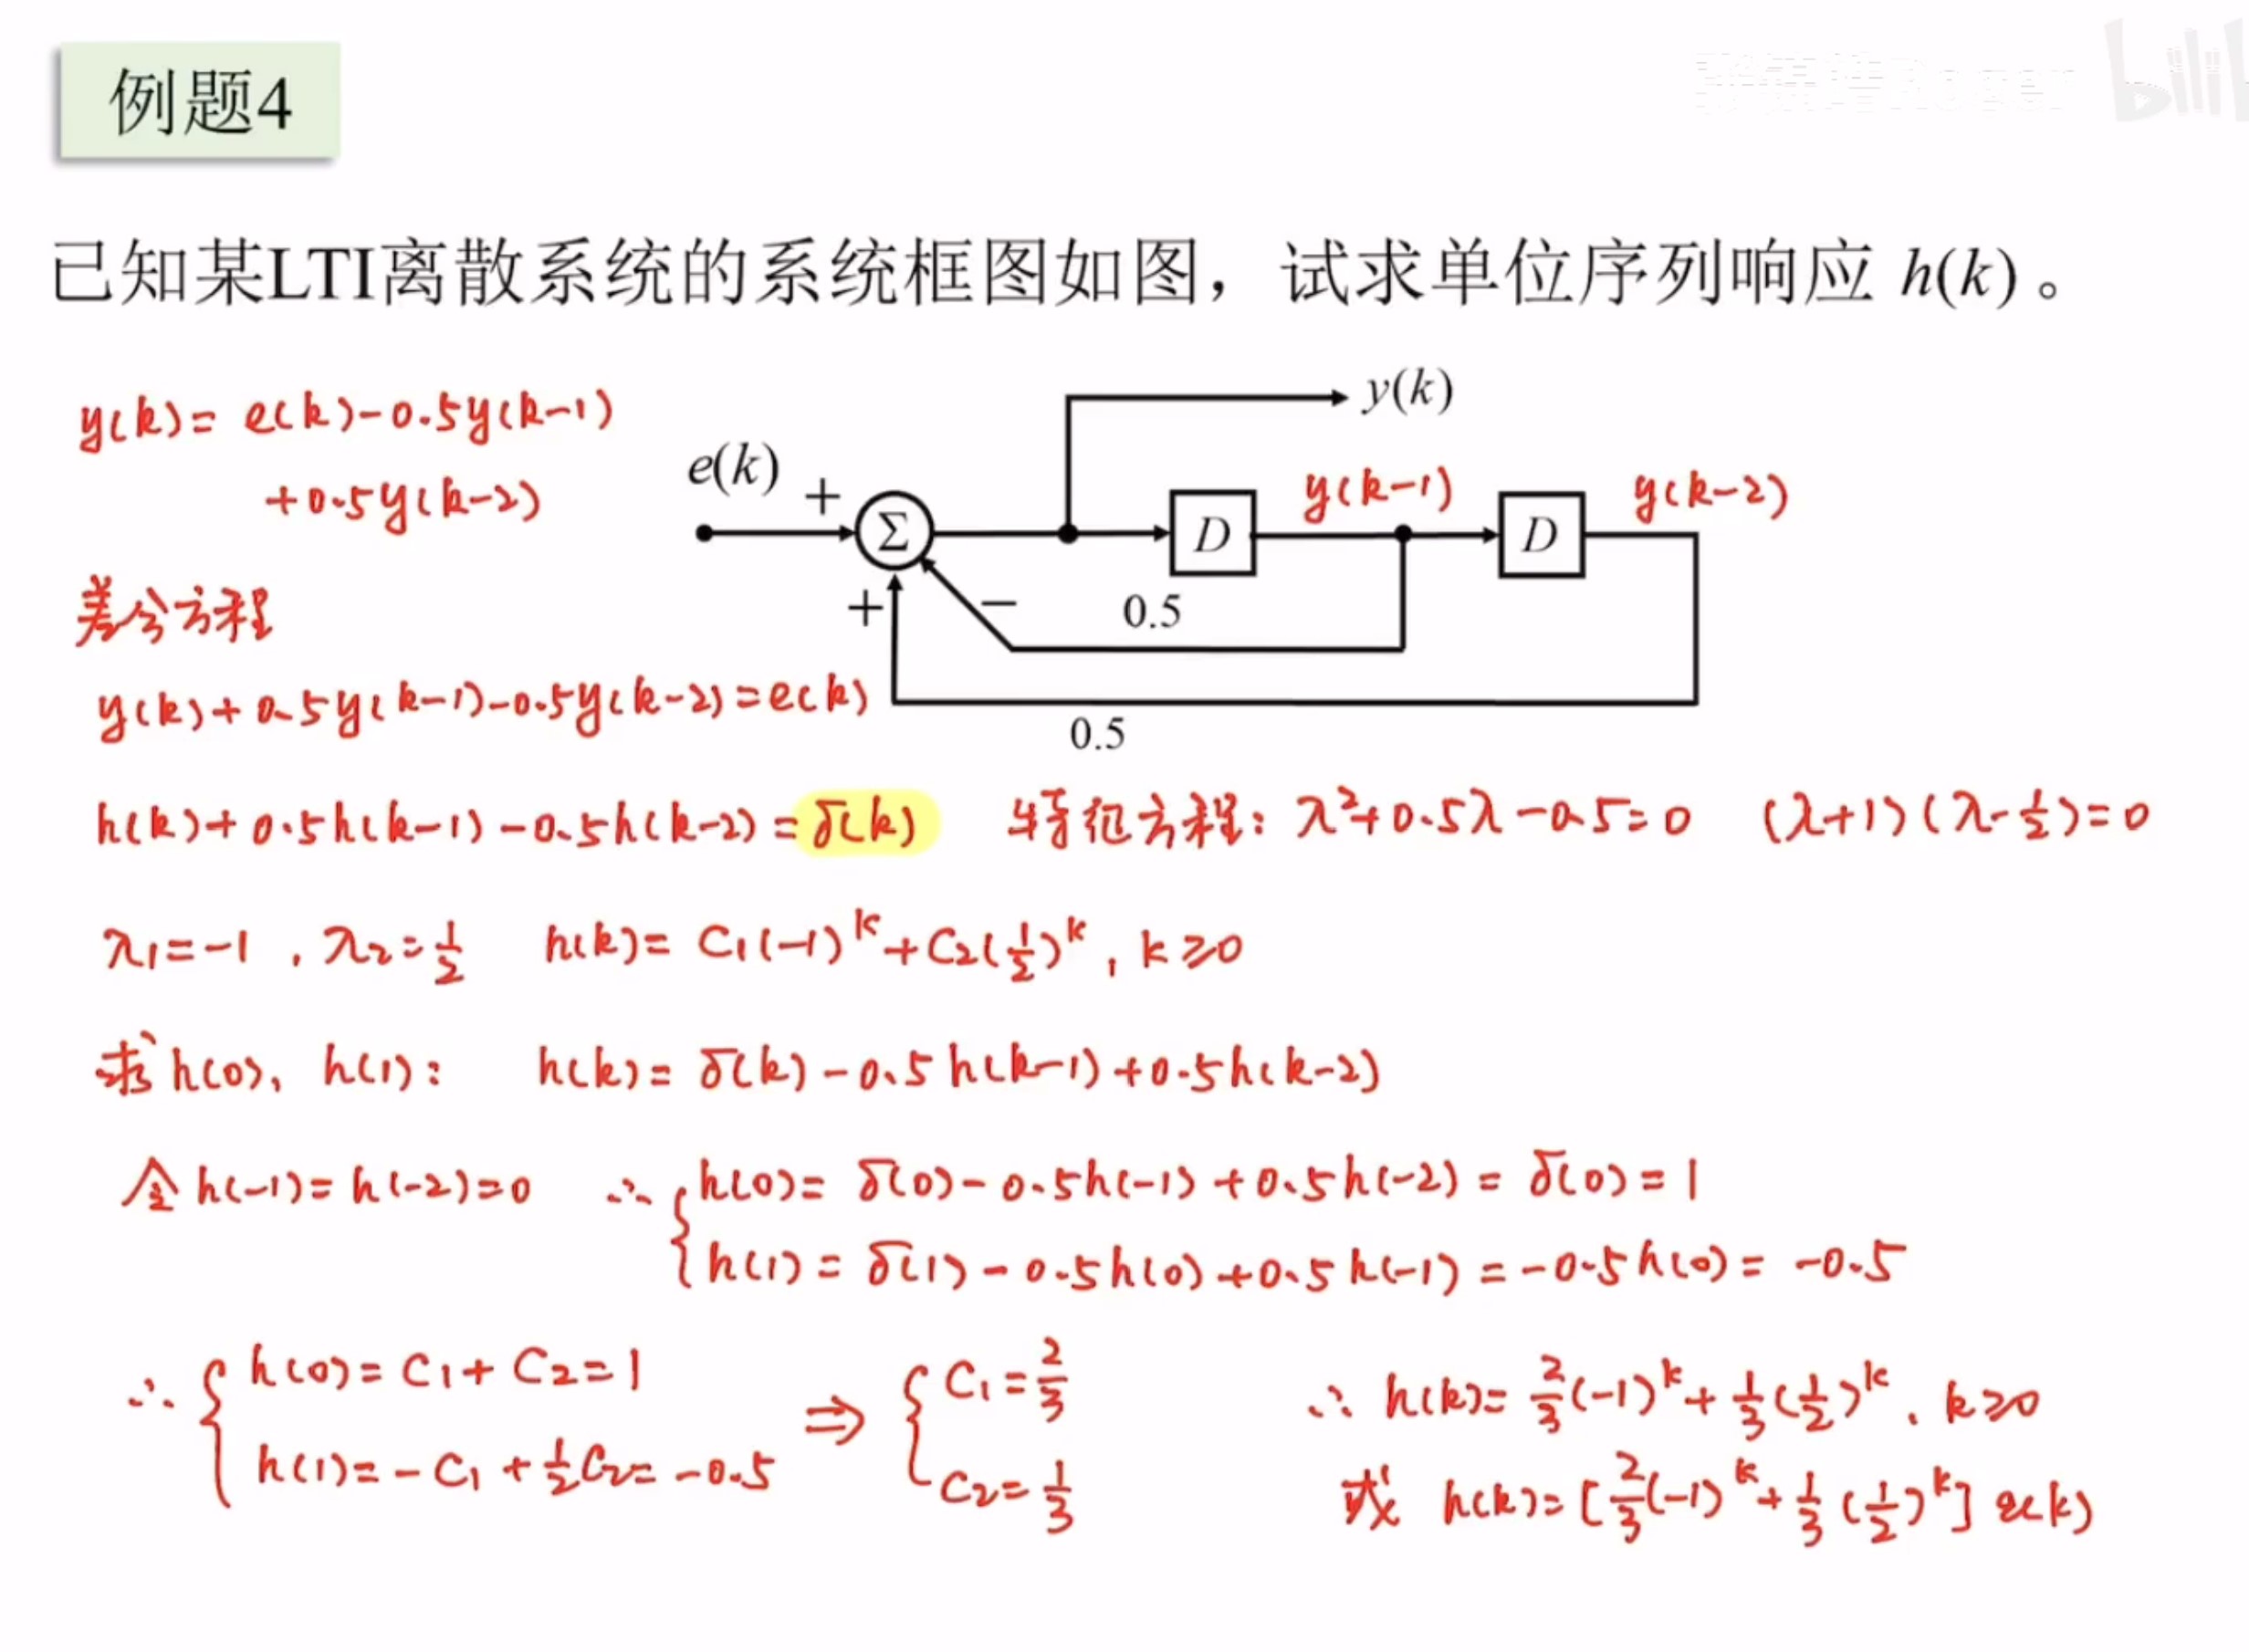 例题4
已知某LTI离散系统的系统框图如图，试求单位序列响应 h(k) 。
y(k)= e(k)-0.5y(k-1)
+0.5y(k-2)
y(k)
e(k)
+
Σ
D
y(k-1)
D
y(k-2)
+
−
0.5
0.5
差分方程
y(k)+0.5y(k-1)-0.5y(k-2)=e(k)
h(k)+0.5h(k-1)-0.5h(k-2)=δ(k) 特征方程: λ²+0.5λ-0.5=0 (λ+1)(λ-½)=0
λ₁=-1 , λ₂=½ h(k)= C₁(-1)^k+C₂(½)^k , k≥0
求h(0)、h(1): h(k)= δ(k)-0.5h(k-1)+0.5h(k-2)
令h(-1)=h(-2)=0 ∴ { h(0)= δ(0)-0.5h(-1)+0.5h(-2)= δ(0)=1
h(1)= δ(1)-0.5h(0)+0.5h(-1)=-0.5h(0)= -0.5
∴ { h(0)= C₁+C₂=1
h(1)=-C₁+½C₂=-0.5
⇒ { C₁=2/3
C₂=1/3
∴ h(k)= 2/3(-1)^k+1/3(½)^k , k≥0
或 h(k)=[2/3(-1)^k+1/3(½)^k] ε(k)